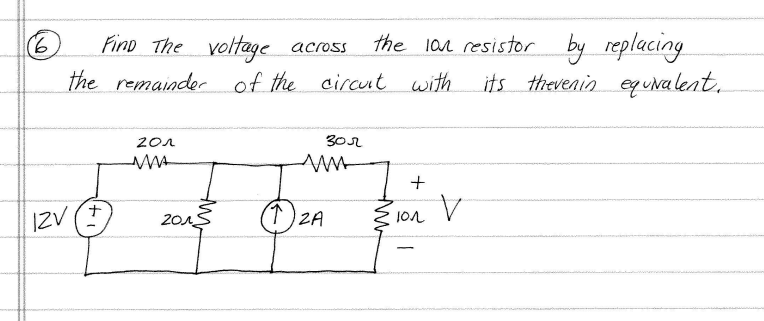 6 Find The voltage across the 10Ω resistor by replacing
the remainder of the circuit with its thevenin equivalent.
20Ω 30Ω
12V + - 20Ω ↑ 2A 10Ω + V -